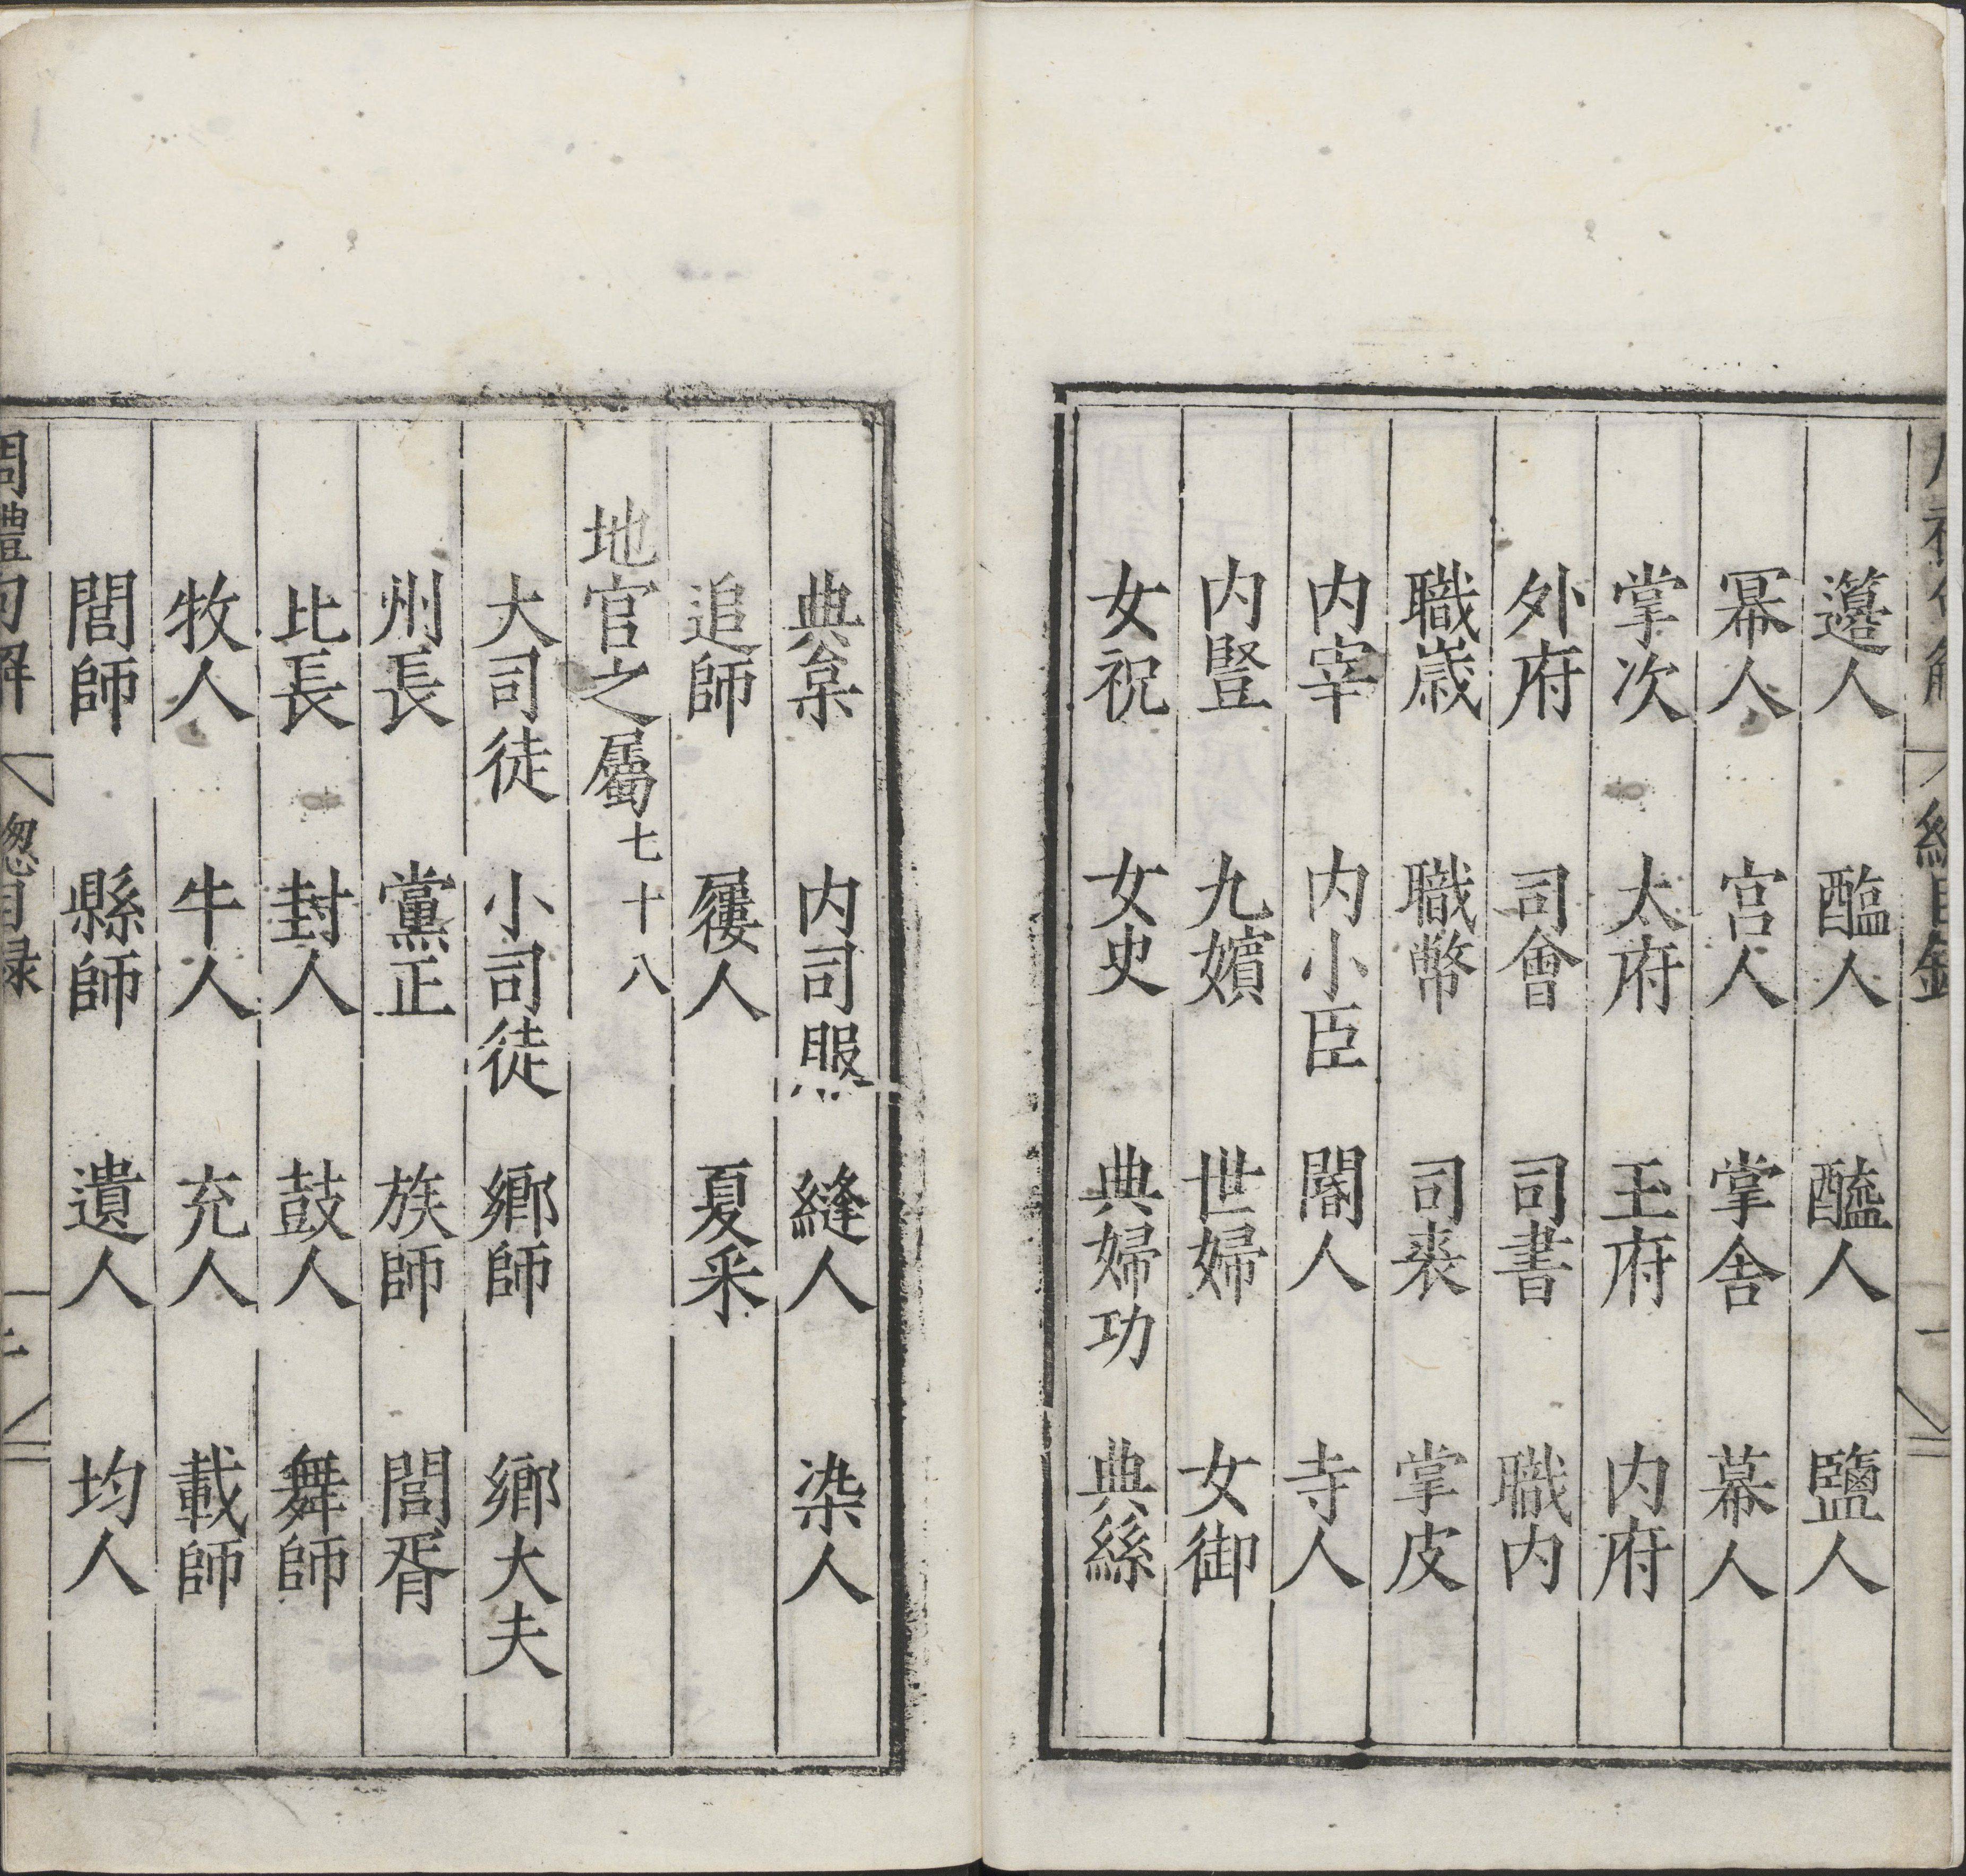 籩人 醢人 醯人 鹽人
冪人 宫人 掌舍 幕人
掌次 太府 玉府 内府
外府 司會 司書 職内
職歲 職幣 司裘 掌皮
内宰 内小臣 閽人 寺人
内豎 九嬪 世婦 女御
女祝 女史 典婦功 典絲
典枲 内司服 縫人 染人
追師 屨人 夏采
地官之屬七十八
大司徒 小司徒 鄉師 鄉大夫
州長 黨正 族師 閭胥
比長 封人 鼓人 舞師
牧人 牛人 充人 載師
閭師 縣師 遺人 均人
周禮句解 緫目録 二